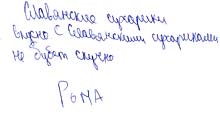 Славянские сухарики
вкусно С Славянскими сухариками
не будет скучно
Рома